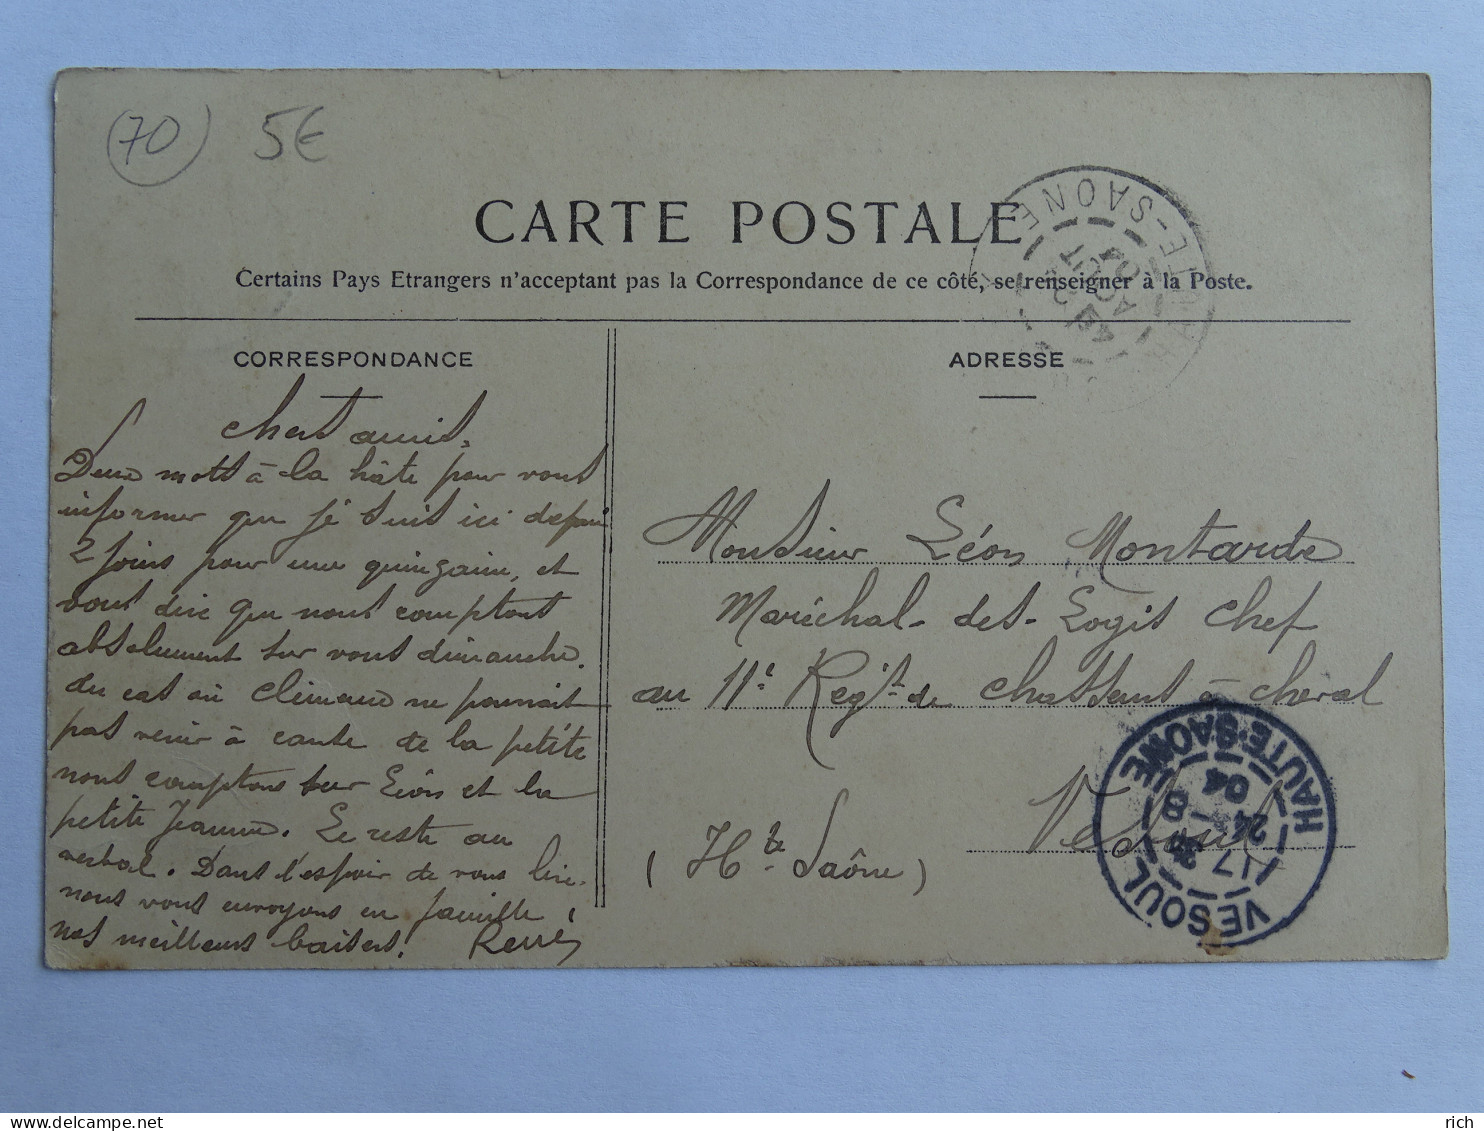 (70) 5€
CARTE POSTALE
Certains Pays Etrangers n'acceptant pas la Correspondance de ce côté, se renseigner à la Poste.
CORRESPONDANCE
Chers amis,
Deux mots à la hâte pour vous
informer que je suis ici depuis
2 jours pour une quinzaine, et
vous dire que nous comptons
absolument sur vous dimanche.
du cas où Clémence ne pourrait
pas venir à cause de la petite
nous comptons sur Léon et la
petite Jeanne. Le reste au
verbal. Dans l'espoir de vous lire.
nous vous envoyons en famille,
nos meilleurs baisers.
ADRESSE
Monsieur Léon Montarde
Maréchal-des-Logis Chef
au 11e Regt de Chasseurs à cheval
Vesoul
(Hte Saône)
HAUTE-SAONE
AOUT
04
VESOUL
HAUTE-SAONE
17
24
8
04
delcampe.net
rich